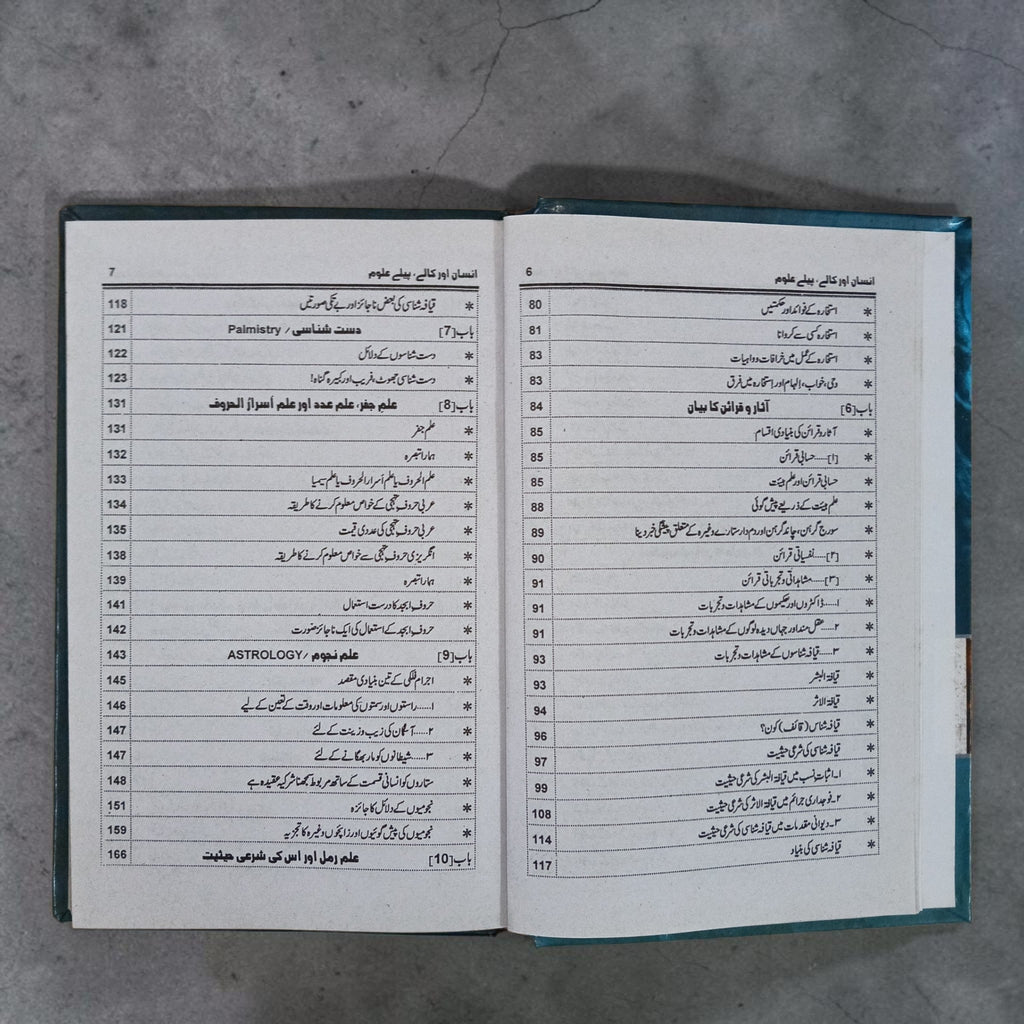 انسان اور کالے، پیلے علوم 6
* استخارہ کے فوائد اور حکمتیں 80
* استخارہ کسی سے کروانا 81
* استخارہ کے عمل میں خرافات و واہیات 83
* وحی، خواب، الہام اور استخارہ میں فرق 83
باب[6] آثار و قرائن کا بیان 84
* آثار و قرائن کی بنیادی اقسام 85
* [۱].....حسابی قرائن 85
* حسابی قرائن اور علم ہیئت 85
* علم ہیئت کے ذریعے پیش گوئی 88
* سورج گرہن، چاند گرہن اور دم دار ستارے وغیرہ کے متعلق پیشگی خبر دینا 89
* [۲].....نفسیاتی قرائن 90
* [۳].....مشاہداتی و تجرباتی قرائن 91
* ۱.....ڈاکٹروں اور حکیموں کے مشاہدات و تجربات 91
* ۲.....عقل مند اور جہاں دیدہ لوگوں کے مشاہدات و تجربات 91
* ۳.....قیافہ شناسوں کے مشاہدات و تجربات 93
* قیافۃ البشر 93
* قیافۃ الاثر 94
* قیافہ شناس (قائف) کون؟ 96
* قیافہ شناسی کی شرعی حیثیت 97
* ۱۔اثبات نسب میں قیافۃ البشر کی شرعی حیثیت 99
* ۲۔فوجداری جرائم میں قیافۃ الاثر کی شرعی حیثیت 108
* ۳۔دیوانی مقدمات میں قیافہ شناسی کی شرعی حیثیت 114
* قیافہ شناسی کی بنیاد 117
انسان اور کالے، پیلے علوم 7
* قیافہ شناسی کی بعض ناجائز اور بے تکی صورتیں 118
باب[7] دست شناسی / Palmistry 121
* دست شناسوں کے دلائل 122
* دست شناسی جھوٹ، فریب اور کبیرہ گناہ! 123
باب[8] علم جفر، علم عدد اور علم أسرارُ الحروف 131
* علم جفر 131
* ہمارا تبصرہ 132
* علم الحروف یا علم أسرار الحروف یا علم سیمیا 133
* عربی حروفِ تہجی کے خواص معلوم کرنے کا طریقہ 134
* عربی حروفِ تہجی کی عددی قیمت 135
* انگریزی حروفِ تہجی سے خواص معلوم کرنے کا طریقہ 138
* ہمارا تبصرہ 139
* حروف ابجد کا درست استعمال 141
* حروف ابجد کے استعمال کی ایک ناجائز صورت 142
باب[9] علم نجوم /ASTROLOGY 143
* اجرام فلکی کے تین بنیادی مقصد 145
* ۱.....راستوں اور سمتوں کی معلومات اور وقت کے تعین کے لیے 146
* ۲.....آسمان کی زیب و زینت کے لئے 147
* ۳.....شیطانوں کو مار بھگانے کے لئے 147
* ستاروں کو انسانی قسمت کے ساتھ مربوط سمجھنا شرکیہ عقیدہ ہے 148
* نجومیوں کے دلائل کا جائزہ 151
* نجومیوں کی پیش گوئیوں اور زائچوں وغیرہ کا تجزیہ 159
باب[10] علم رمل اور اس کی شرعی حیثیت 166